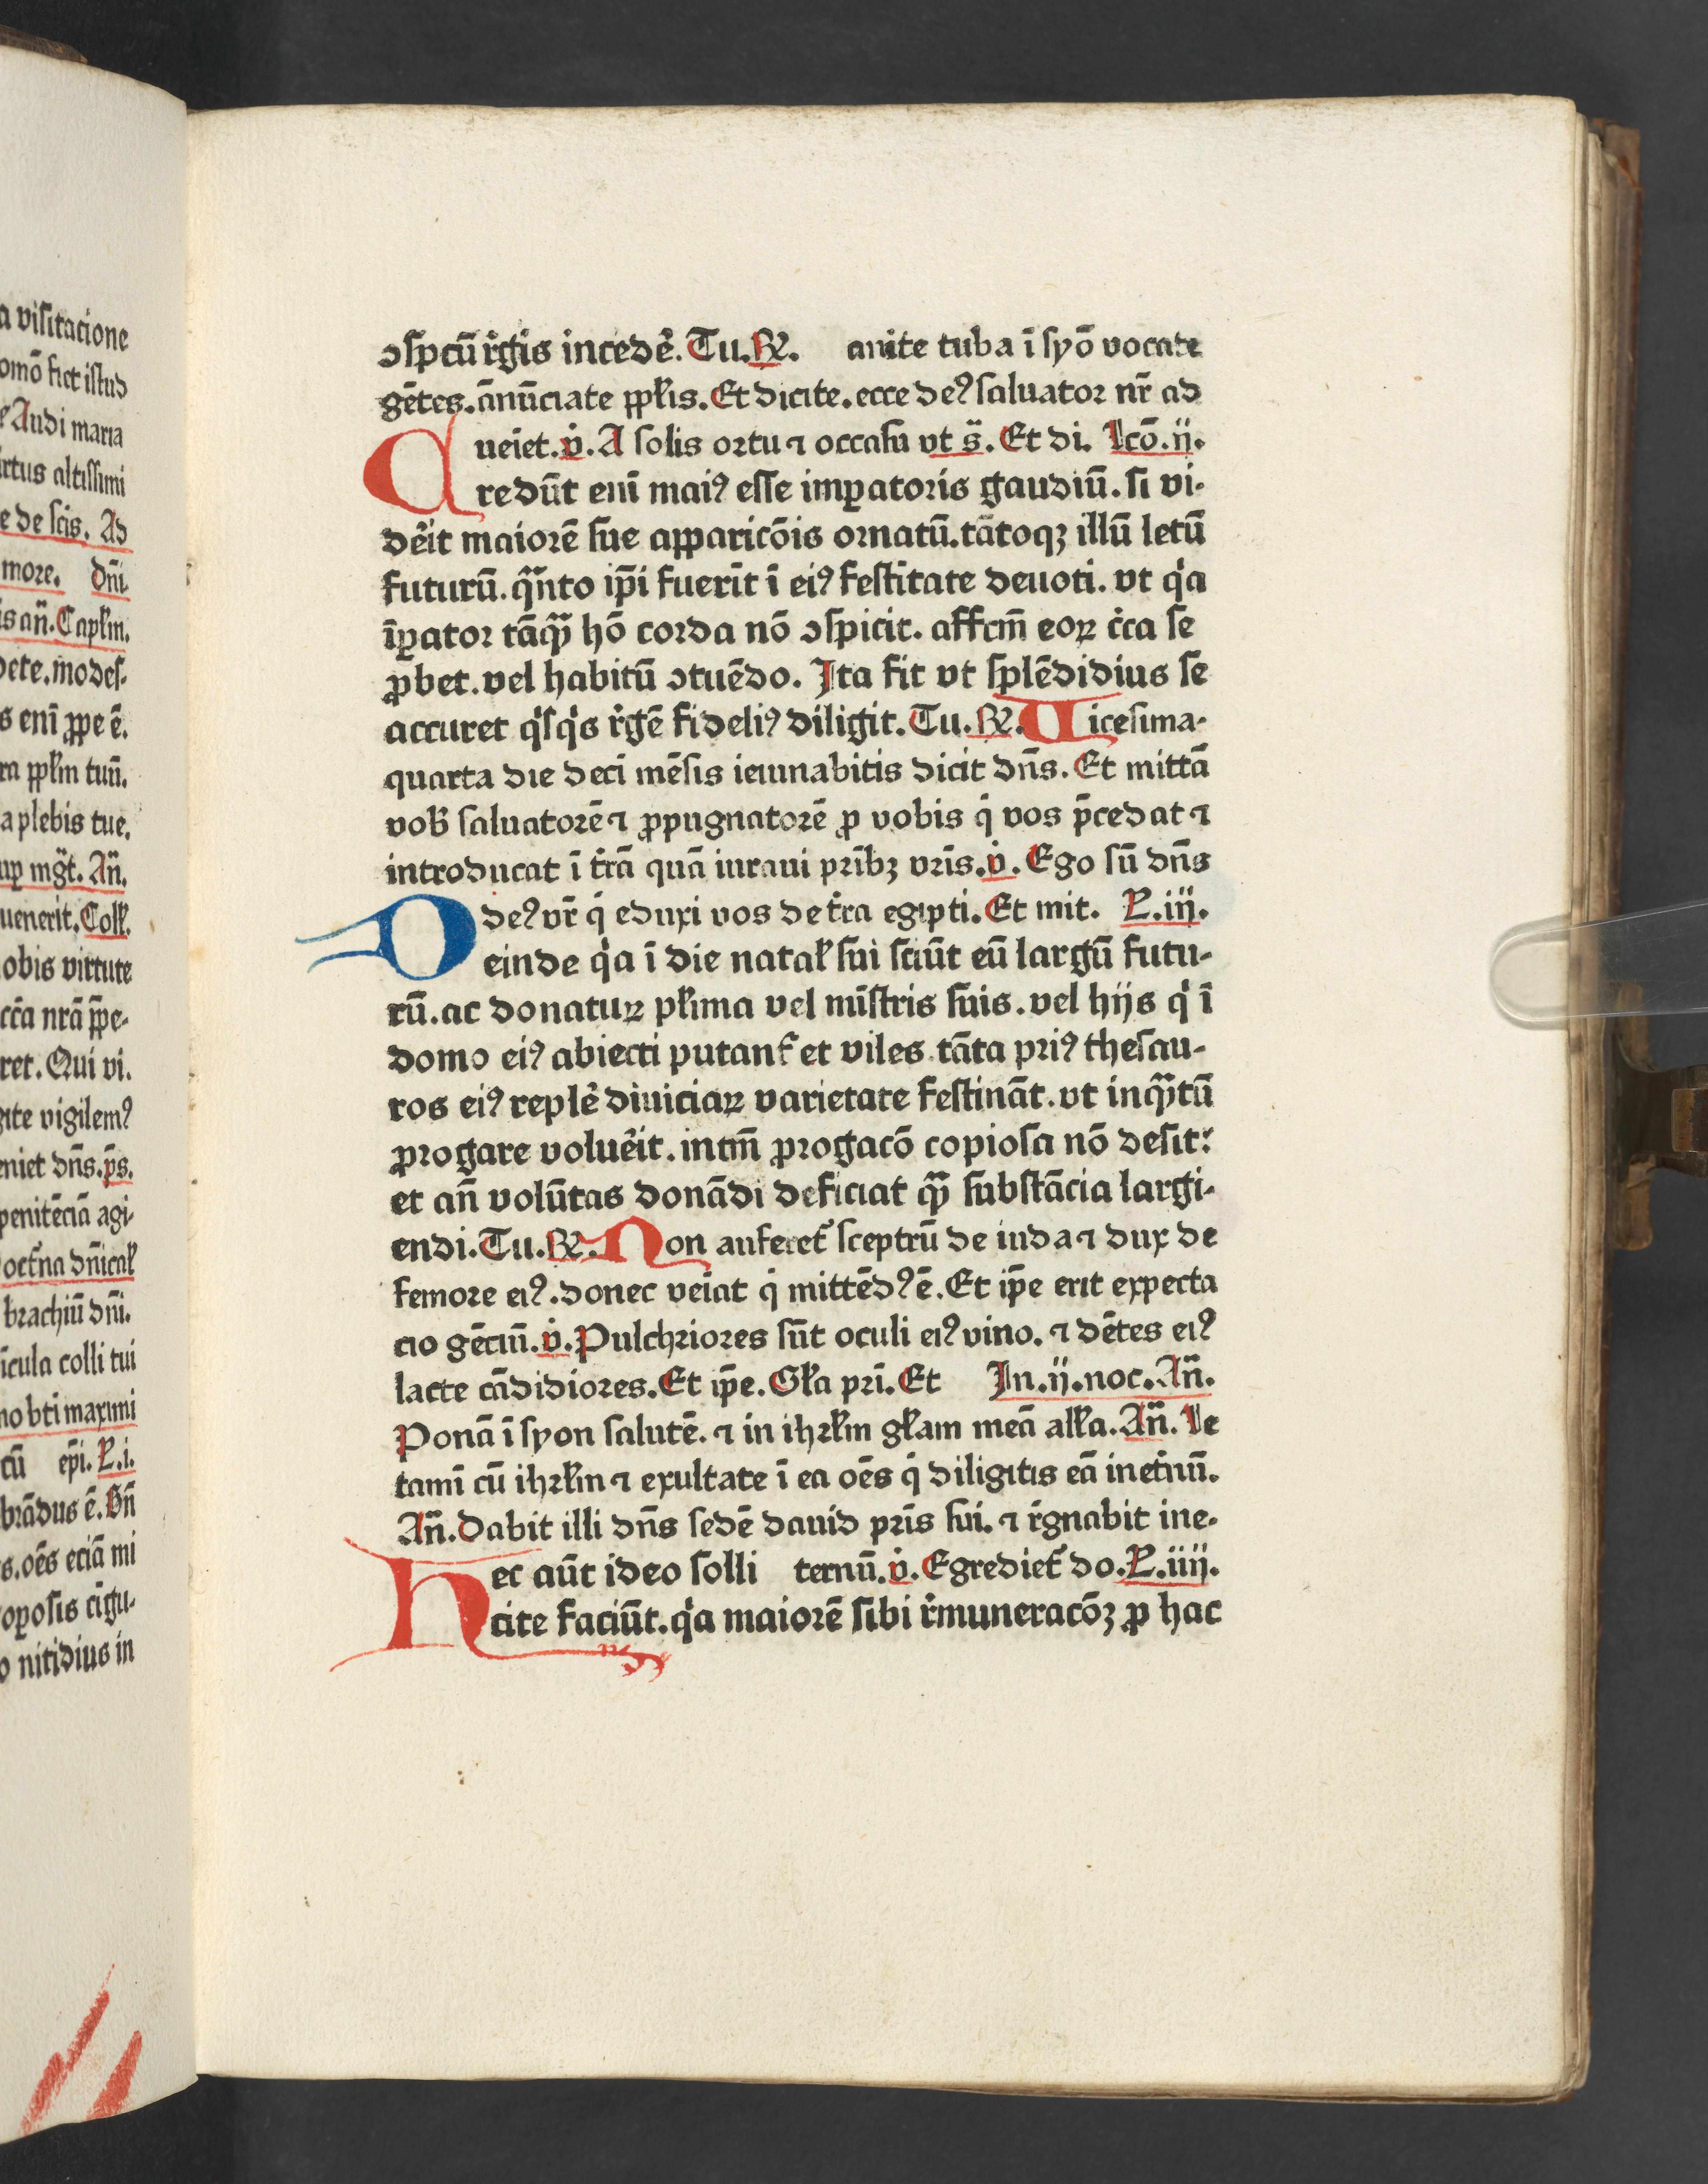 a visitacione
omō fiet istud
Audi maria
irtus altissimi
e de scis. Ad
more. dn̄i
is an̄. Capl̄m.
dete. modes-
s eni ꝓpe ē.
ra ppl̄m tuū.
a plebis tue.
up mgt̄. An̄.
uenerit. Coll̄.
obis virtute
ret. Qui vi.
gite vigilemꝰ
eniet dn̄s. p̄s.
penitēciā agi-
octn̄a dn̄ical̄
brachiū dn̄i.
icula colli tui
no bt̄i maximi
cū ep̄i. L. i.
brādus ē. Bn̄
s. oēs eciā mi
oposis cīgu-
o nitidius in
ↄspcū rͥgis incedē. Tu. ℞. anite tuba ī syō vocate
gētes. ānūciate ppl̄is. Et dicite. ecce deꝰ saluator nr̄ ad
ueiet. v̇. A solis ortu ⁊ occasu vt s̄. Et di. Lcō. ij.
C redūt enī maiꝰ esse imꝑatoris gaudiū. si vi-
dēit maiorē sue apparicōis ornatū. tātoqꝫ illū letū
futurū. qͣnto ip̄i fuerīt ī eiꝰ festītate deuoti. vt qͥa
īꝑator tāqͣꝫ hō corda nō ↄspicit. affcm̄ eoꝝ cͥca se
ꝓbet. vel habitū ↄtuēdo. Ita fit vt splēdidius se
accuret qͥsqͥs rͥgē fideliꝰ diligit. Tu. ℞. Uicesima-
quarta die deci mēsis ieiunabitis dicit dn̄s. Et mittā
vob̄ saluatorē ⁊ ꝓpugnatorē ꝓ vobis qͥ vos p̄cedat ⁊
introducat ī tr̄rā quā iuraui prībꝫ vrīs. v̇. Ego sū dn̄s
deꝰ vr̄ qͥ eduxi vos de tr̄ra egipti. Et mit. L. iij.
D einde qͥa ī die natal̄ sui sciūt eū largū futu-
rū. ac donatuꝝ pl̄ima vel mīstris suis. vel hijs qͥ ī
domo eiꝰ abiecti putant̄ et viles. tāta priꝰ thesau-
ros eiꝰ replē diuiciaꝝ varietate festināt. vt inqͣꝫtū
ꝓrogare voluēit. intm̄ ꝓrogacō copiosa nō desit:
et an̄ volūtas donādi deficiat qͣꝫ substācia largi-
endi. Tu. ℞. Non auferet̄ sceptrū de iuda ⁊ dux de
femore eiꝰ. donec veīat qͥ mittēdꝰ ē. Et ip̄e erit expecta
cio gēciū. v̇. Pulchriores sūt oculi eiꝰ vino. ⁊ dētes eiꝰ
lacte cādidiores. Et ip̄e. Gl̄a pri. Et In. ij. noc. An̄.
Ponā ī syon salutē. ⁊ in ihrl̄m gl̄am meā all̄a. An̄. Le
tami cū ihrl̄m ⁊ exultate ī ea oēs qͥ diligitis eā inetn̄ū.
An̄. Dabit illi dn̄s sedē dauid pris sui. ⁊ rͥgnabit ine-
H ec aūt ideo solli ternū. v̇. Egrediet̄ do. L. iiij.
cite faciūt. qͥa maiorē sibi rͥmuneracōꝫ ꝓ hac